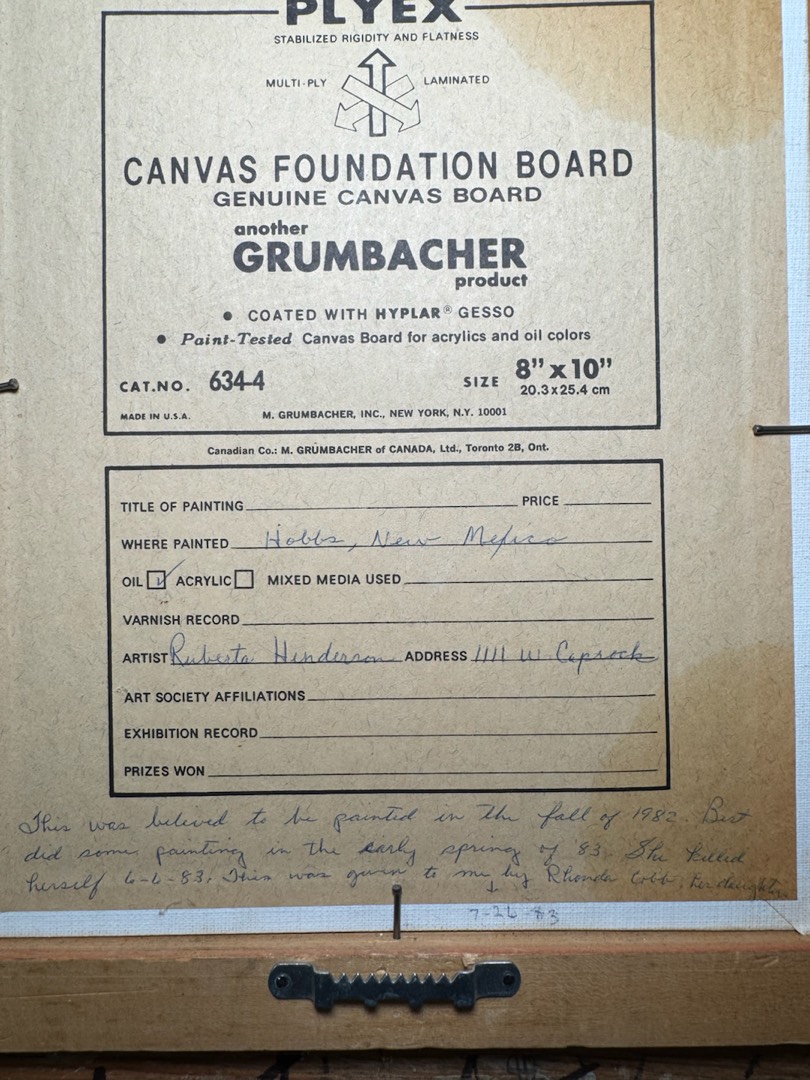 PLYEX
STABILIZED RIGIDITY AND FLATNESS
MULTI-PLY LAMINATED
CANVAS FOUNDATION BOARD
GENUINE CANVAS BOARD
another
GRUMBACHER
product
• COATED WITH HYPLAR® GESSO
• Paint-Tested Canvas Board for acrylics and oil colors
CAT.NO. 634-4 SIZE 8” x 10”
20.3 x 25.4 cm
MADE IN U.S.A. M. GRUMBACHER, INC., NEW YORK, N.Y. 10001
Canadian Co.: M. GRUMBACHER of CANADA, Ltd., Toronto 2B, Ont.
TITLE OF PAINTING PRICE
WHERE PAINTED Hobbs, New Mexico
OIL ✓ ACRYLIC MIXED MEDIA USED
VARNISH RECORD
ARTIST Ruberta Henderson ADDRESS 1111 W. Caprock
ART SOCIETY AFFILIATIONS
EXHIBITION RECORD
PRIZES WON
This was believed to be painted in the fall of 1982. But
did some painting in the early spring of '83. She killed
herself 6-6-83. This was given to me by Rhonda Cobb, her daughter
↓
7-26-83